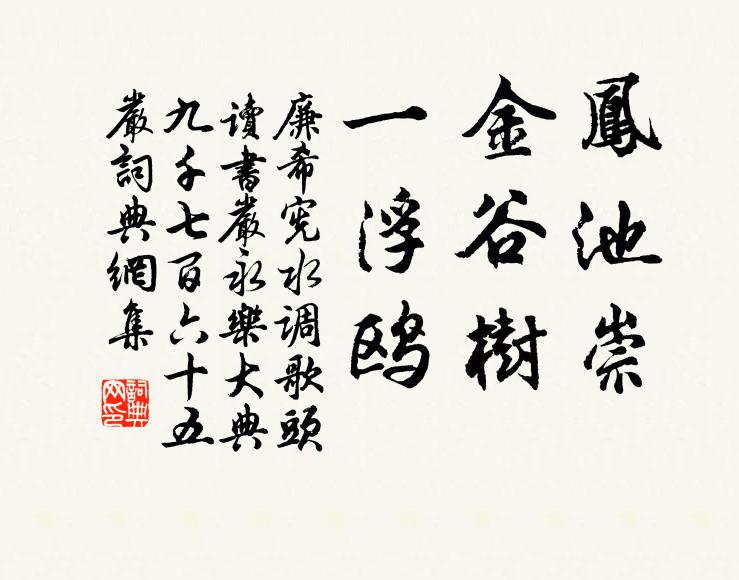 鳳池崇
金谷樹
一浮鸥
廉希宪水调歌頭
讀書巖永樂大典
九千七百六十五
巖詞典網集
詞典
网印